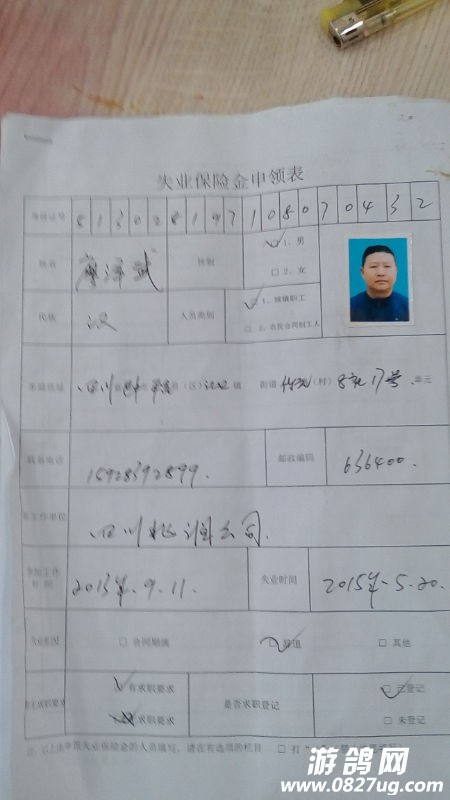 失业保险金申领表
身份证号 5 1 3 0 2 8 1 9 7 1 0 8 0 7 0 4 3 2
姓名 廖泽武 性别 1、男
2、女
民族 汉 人员类别 1、城镇职工
2、农民合同制工人
家庭住址 四川 (区) 镇 街道 (村) 17号 单元
联系电话 15928392899. 邮政编码 636400.
工作单位 四川 公司.
参加工作时间 2013年.9.11. 失业时间 2015年-5.20.
失业原因 合同期满 辞退 其他
有求职要求 是否求职登记 已登记
求职要求 未登记
注:以上由申领失业保险金的人员填写,请在有选项的栏目 打
游鸽网
www.0827ug.com